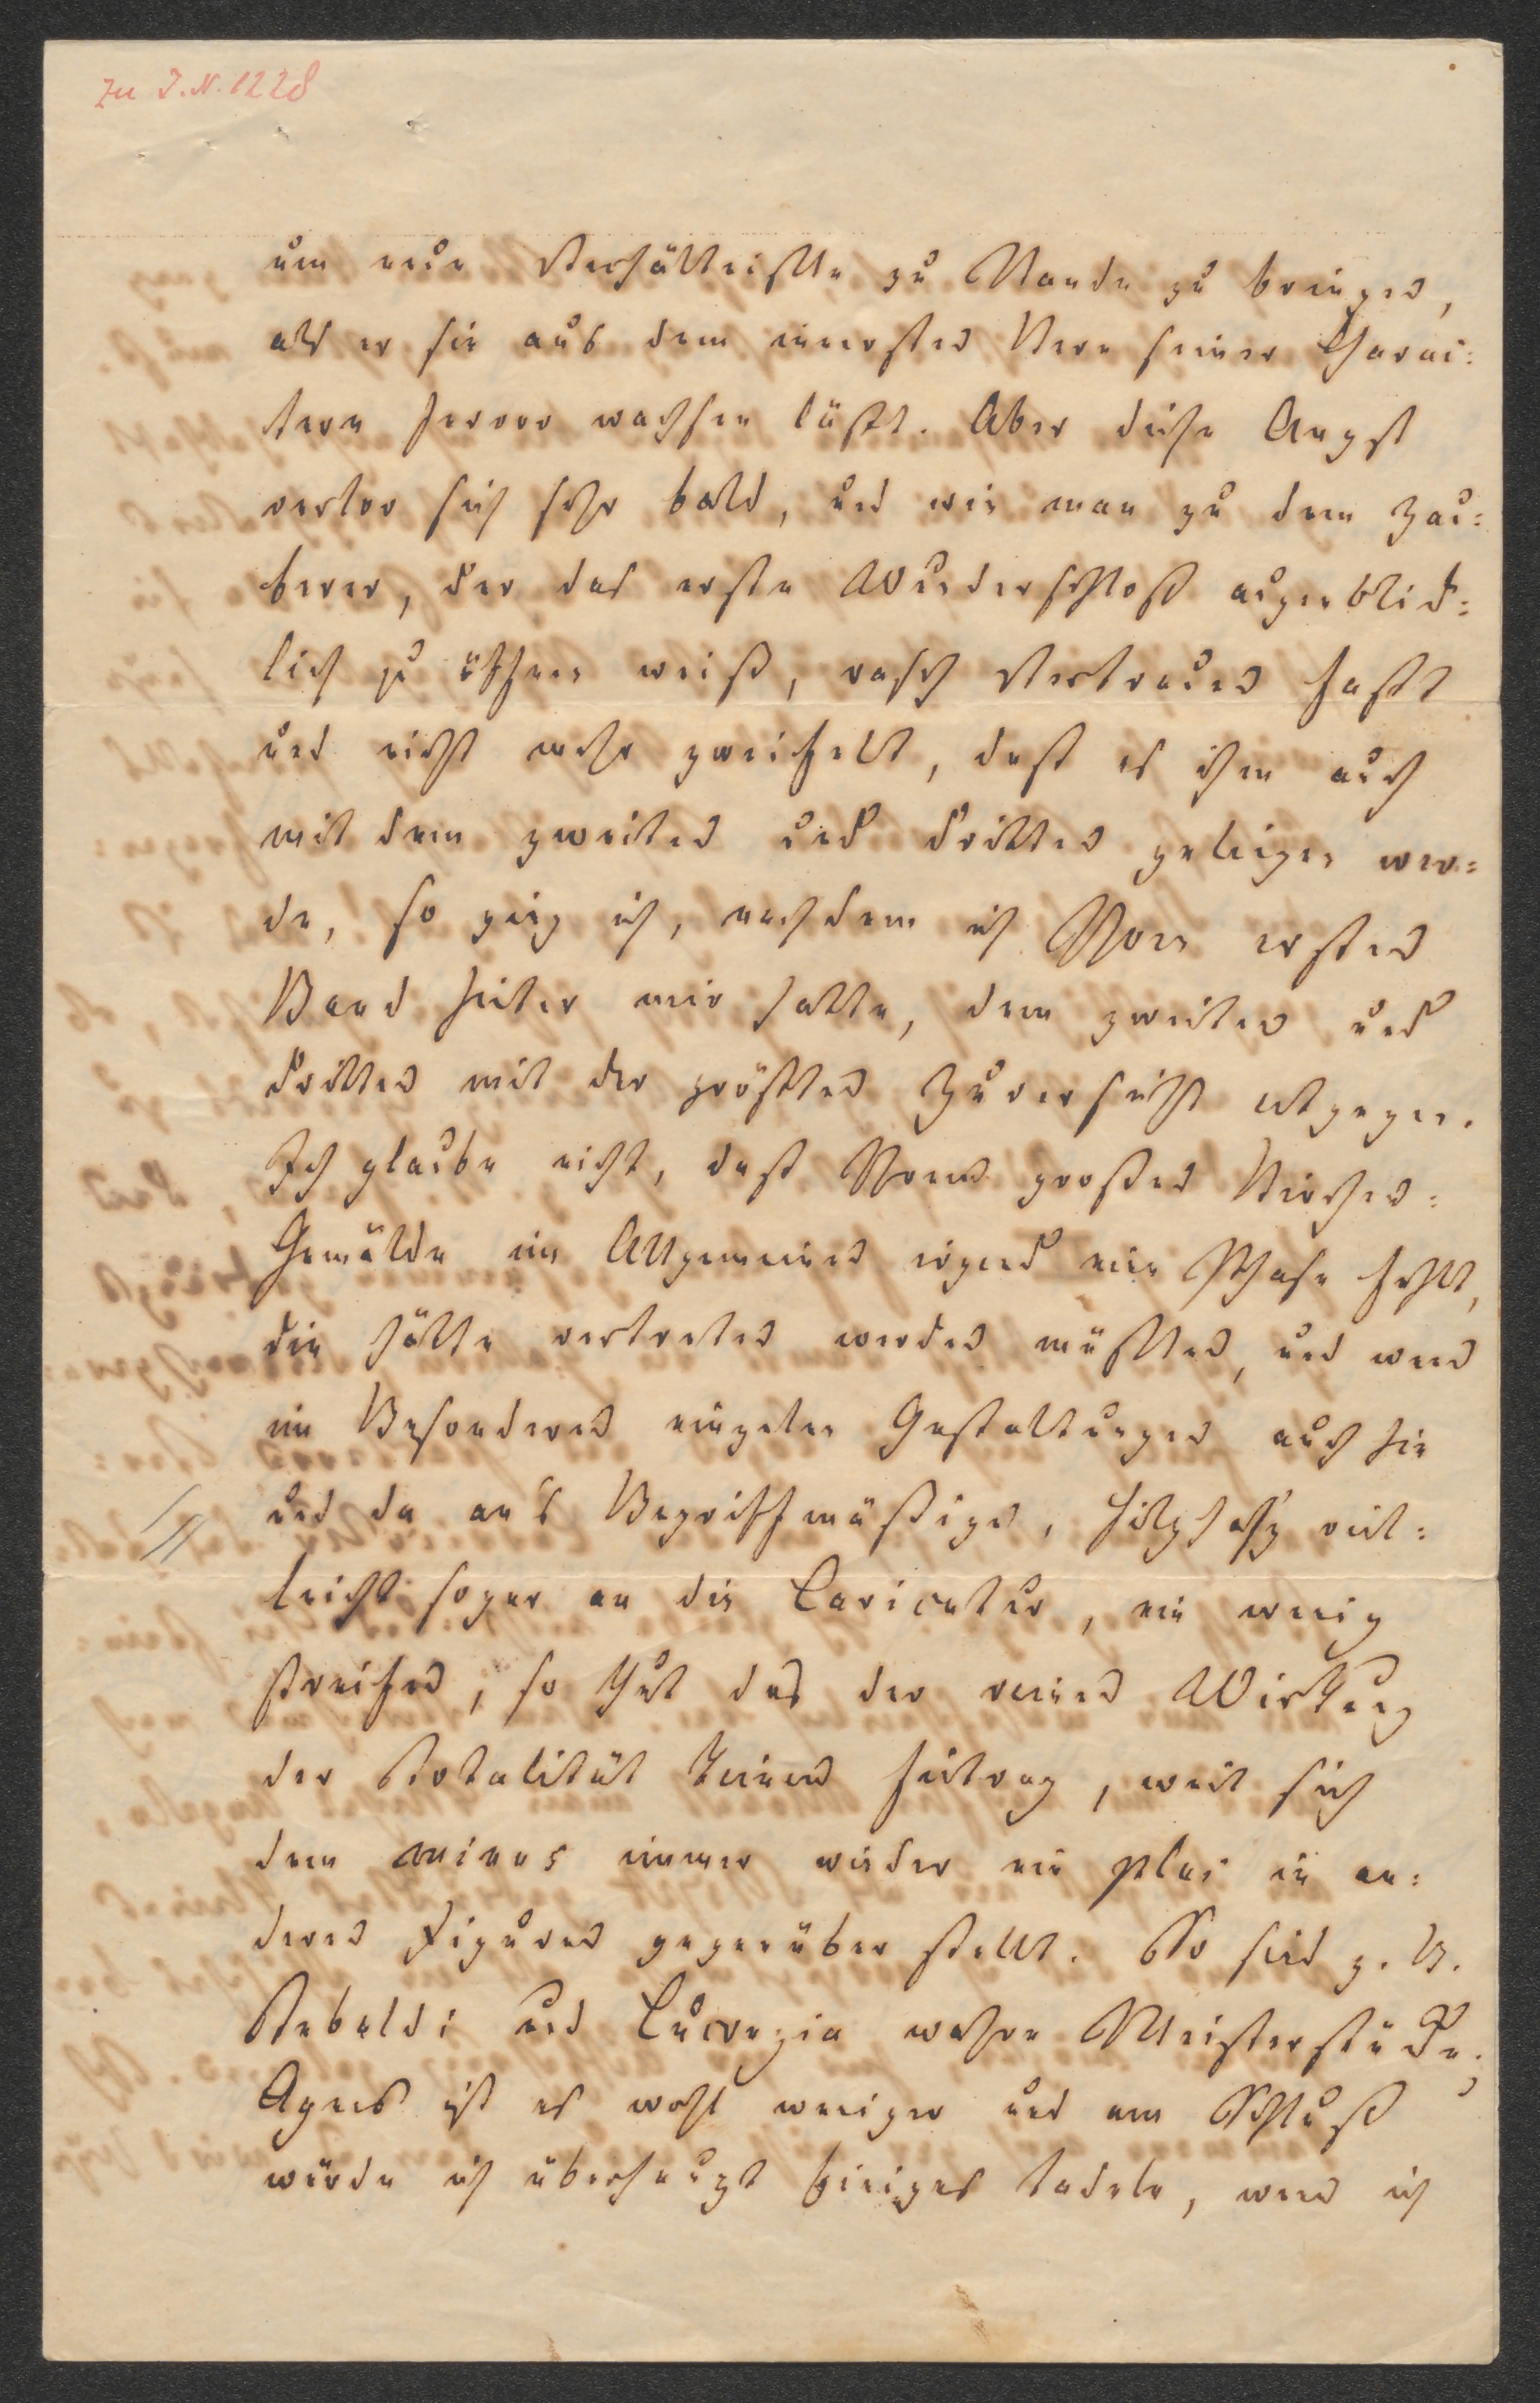 zu I.N. 1228
um neue Verhältnisse zu Stande zu bringen,
als er sie aus dem innersten Kern seiner Charac-
tere hervor wachsen läßt. Aber diese Angst
verlor sich sehr bald, und wie man zu dem Zau-
berer, der das erste Wunderschloß augenblick-
lich zu öffnen weiß, rasch Vertrauen faßt
und nicht mehr zweifelt, daß es ihm auch
mit dem zweiten und dritten gelingen wer-
de, so ging ich, nachdem ich Ihren ersten
Band hinter mir hatte, dem zweiten und
dritten mit der größten Zuversicht entgegen.
Ich glaube nicht, daß Ihrem großen Kirchen-
Gemälde im Allgemeinen irgend eine Phase fehlt,
die hätte vertreten werden müssen, und wenn
im Besonderen einzelne Gestaltungen auch hie
und da an's Begriffmäßige, Holzhafte, viel-
leicht sogar an die Caricatur, ein wenig
streifen, so thut das der reinen Wirkung
der Totalität keinen Eintrag, weil sich
dem minus immer wieder ein plus in an-
deren Figuren gegenüber stellt. So sind z. B.
Tebaldi und Lucrezia wahre Meisterstücke;
Agnes ist es wohl weniger und am Schluß
würde ich überhaupt Einiges tadeln, wenn ich